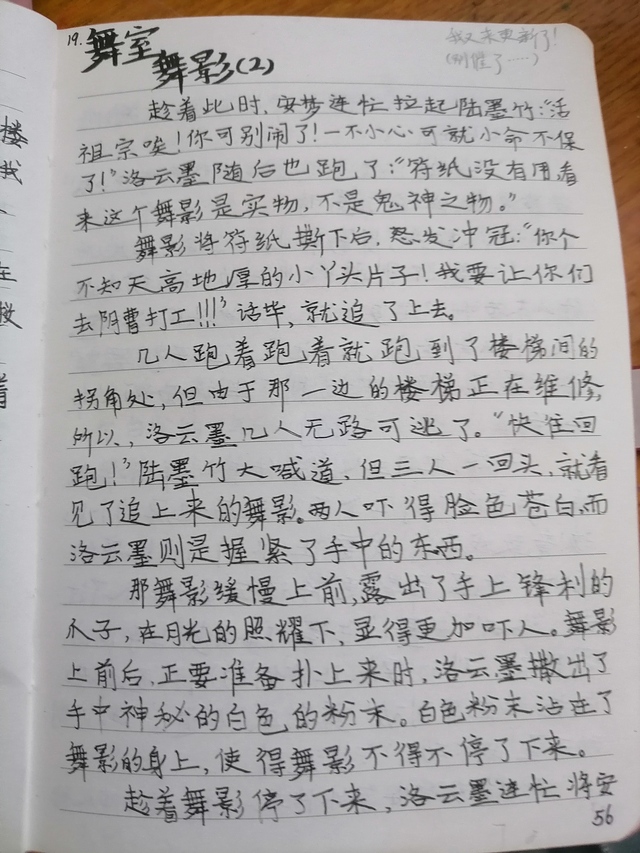 19. 舞室
舞影(2)
我又来更新了!
(别催了……)
趁着此时,安梦连忙拉起陆墨竹:“活
祖宗唉!你可别闹了!一不小心可就小命不保
了!”洛云墨随后也跑了:“符纸没有用,看
来这个舞影是实物,不是鬼神之物。”
舞影将符纸撕下后,怒发冲冠:“你个
不知天高地厚的小丫头片子!我要让你们
去阴曹打工!!!”话毕,就追了上去。
几人跑着跑着就跑到了楼梯间的
拐角处,但由于那一边的楼梯正在维修,
所以,洛云墨几人无路可逃了。“快往回
跑!”陆墨竹大喊道,但三人一回头,就看
见了追上来的舞影。两人吓得脸色苍白,而
洛云墨则是握紧了手中的东西。
那舞影缓慢上前,露出了手上锋利的
爪子,在月光的照耀下,显得更加吓人。舞影
上前后,正要准备扑上来时,洛云墨撒出了
手中神秘的白色的粉末。白色粉末沾在了
舞影的身上,使得舞影不得不停了下来。
趁着舞影停了下来,洛云墨连忙将安
56
楼
我
在
楼
着